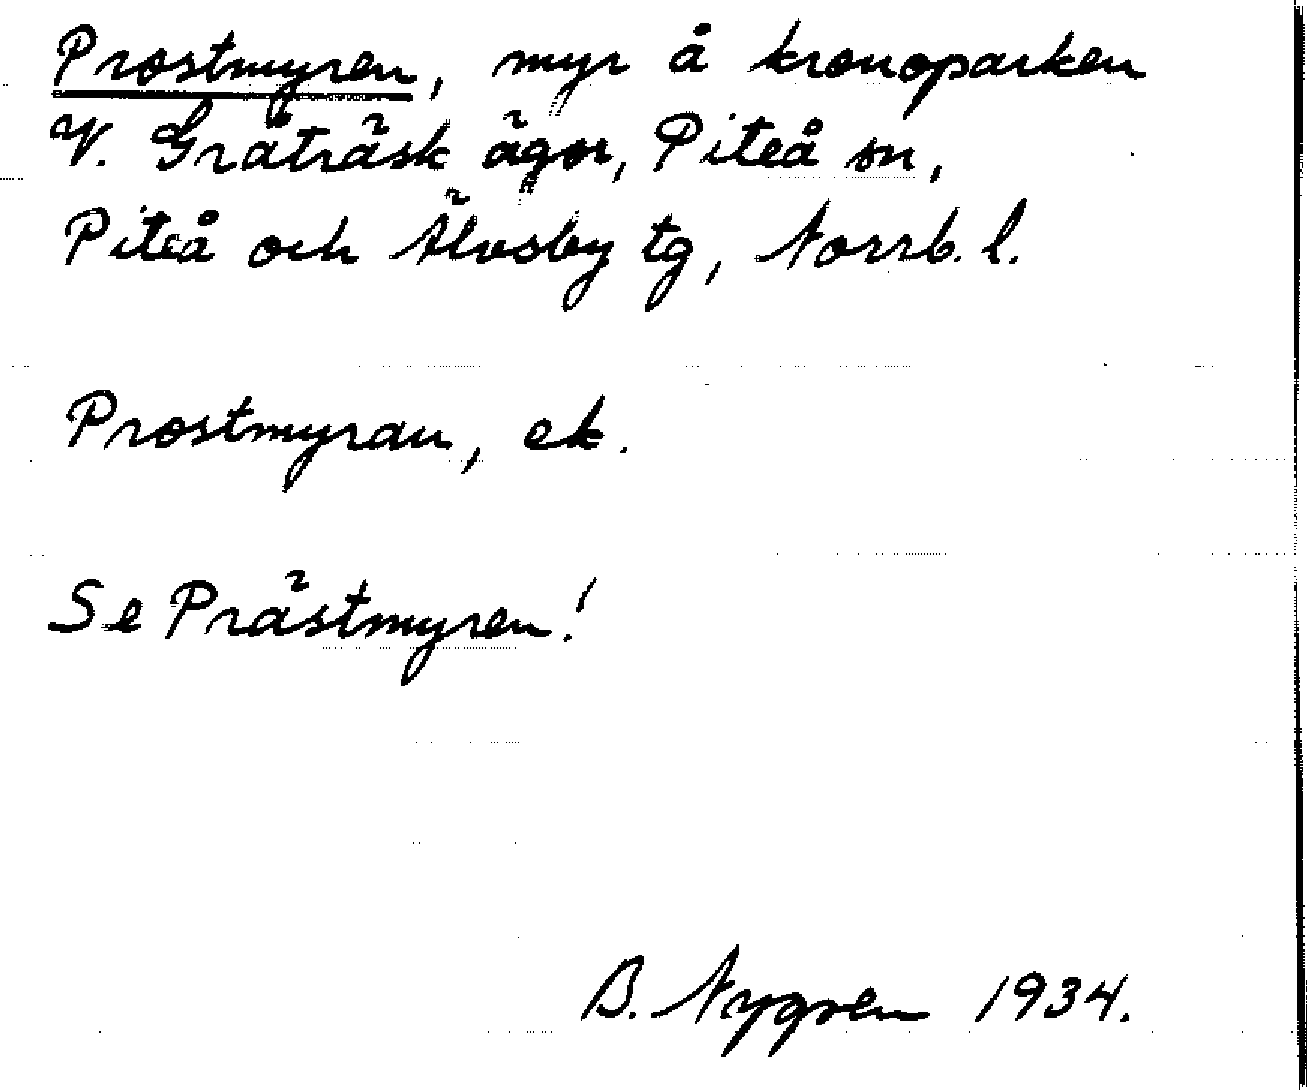 Prostmyren, myr å kronoparken
V. Gråträsk ägor, Piteå sn,
Piteå och Älvsby tg, Norrb. l.
Prostmyran, ek.
Se Prästmyren!
B. Nygren 1934.